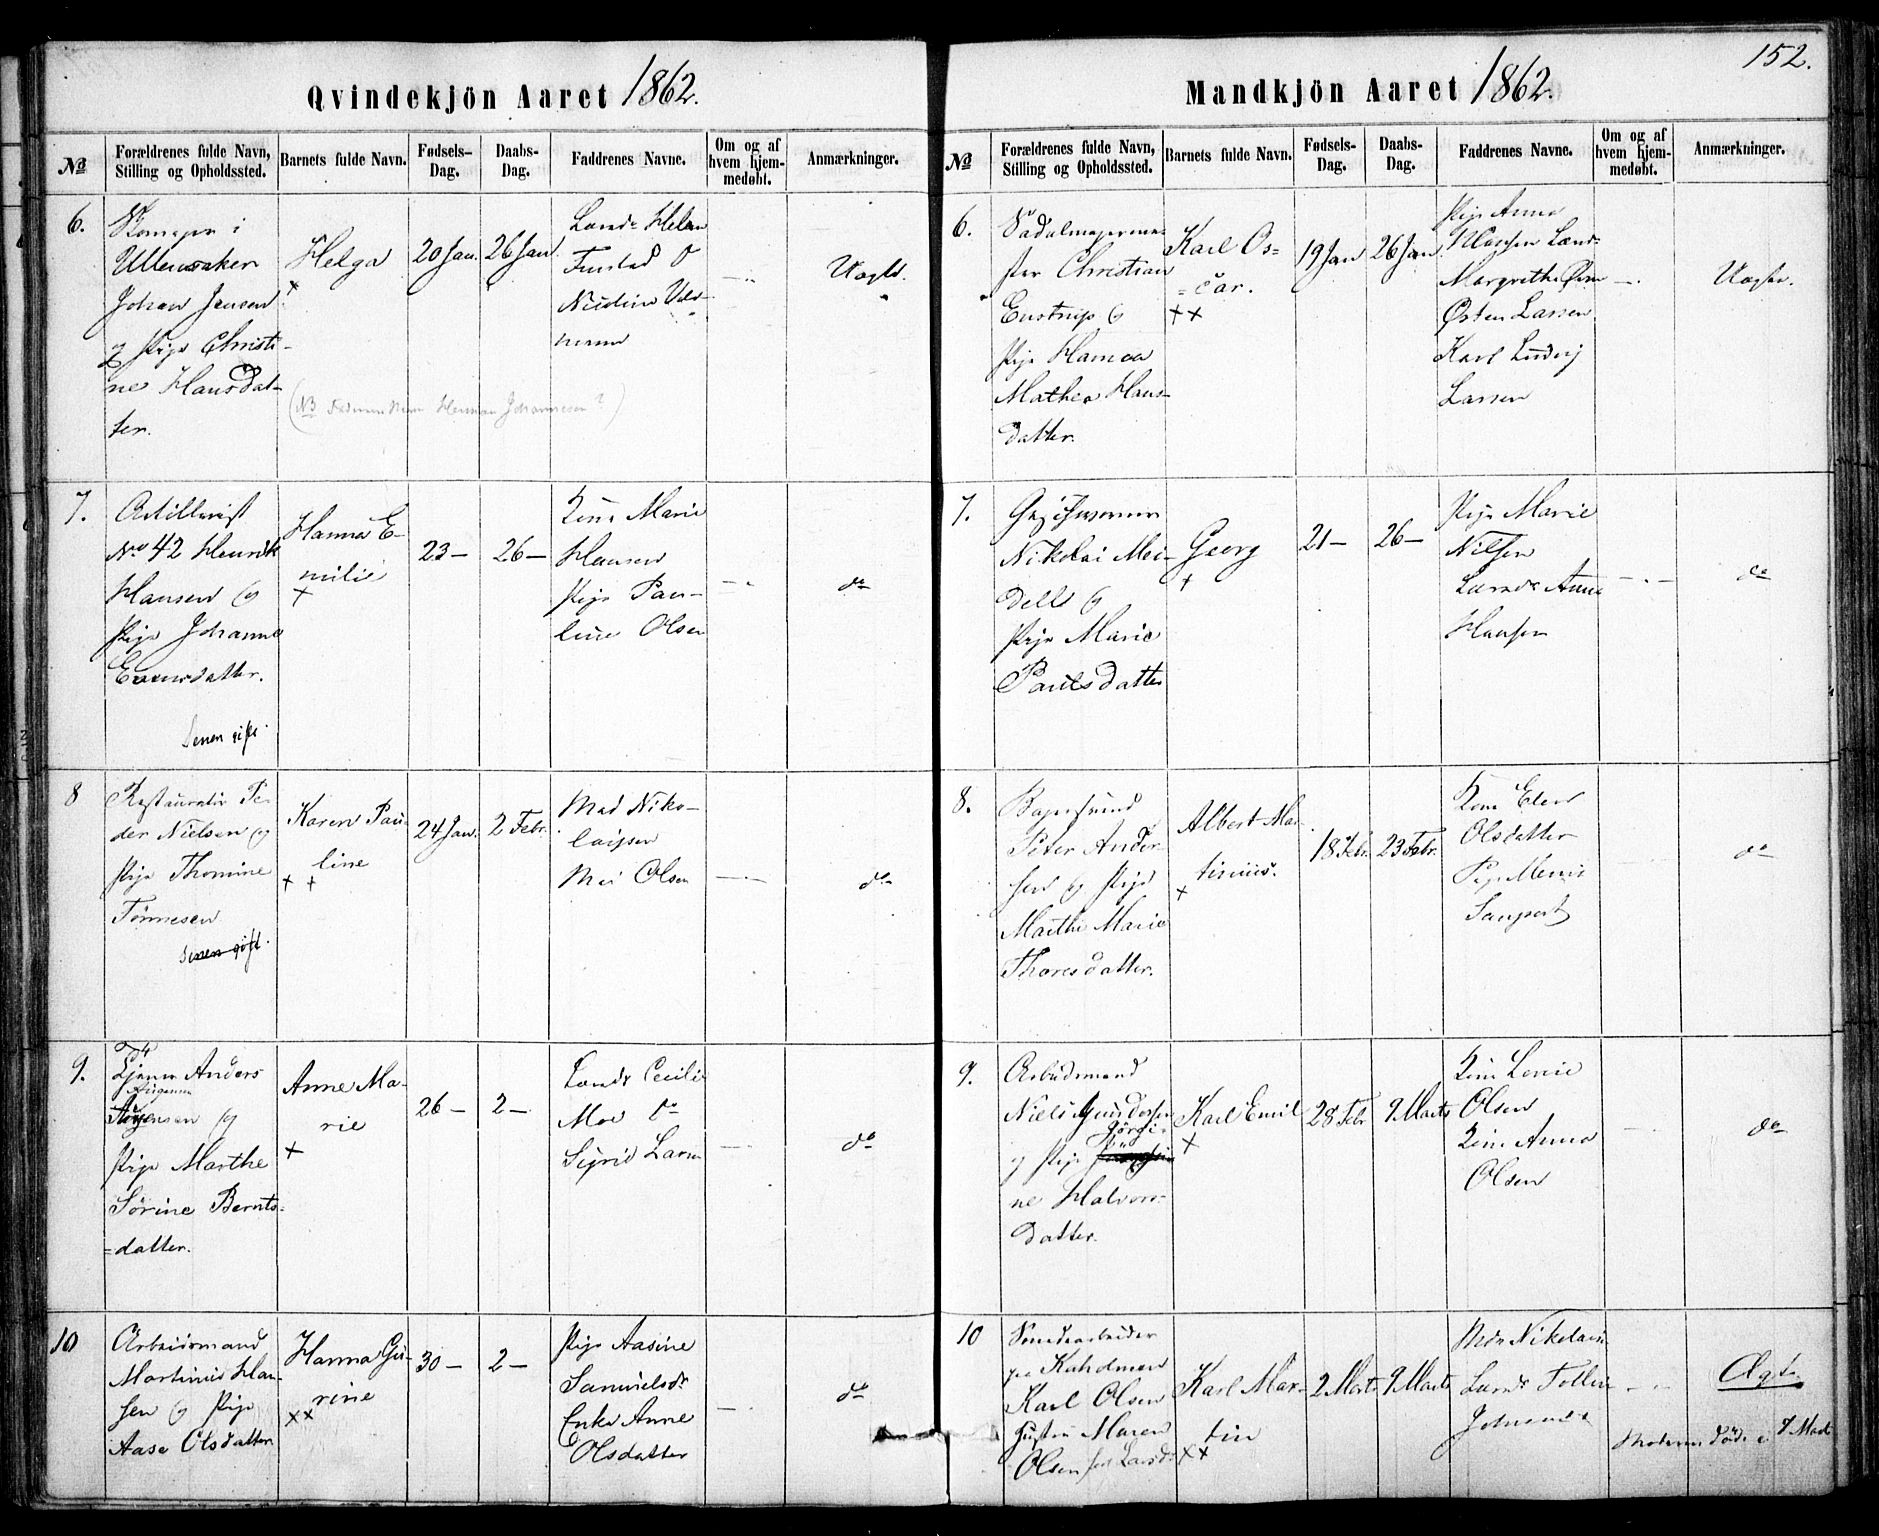 152.
Qvindekjön Aaret 1862.
No
Forældrenes fulde Navn,
Stilling og Opholdssted.
Barnets fulde Navn.
Fødsels-
Dag.
Daabs-
Dag.
Faddrenes Navne.
Om og af
hvem hjem-
medøbt.
Anmærkninger.
6.
i
Ullensaker
Johan Jensen
og Pige Christi-
ne Hansdat-
ter.
Helga
20 Jan.
26 Jan
Uægte.
(NB Herman Johannesen ?)
7.
Artillerist
No 42 Henrik
Hansen og
Pige Johanne
Evensdatter.
Senen gift
Hanna E-
milie
+
23 —
26 —
Kone Marie
Hansen
Pige Pau-
line Olsen
do
8
Restauratör Pe-
der Nielsen og
Pige Thomine
Tönnesen
Senen gift.
Karen Pau-
line
+ +
24 Jan.
2 Febr.
Mad Niko-
laisen
Mad Olsen
do
9.
Tjener Anders
Jörgensen og
Pige Marthe
Sörine Bernts-
=datter.
Anne Ma-
rie
+
26 —
2 —
Cecilie
Moe do
Sigrid Larsen
do
10
Arbeidsmand
Martinius Han-
sen og Pige
Aase Olsdatter
Hanna Gu-
rine
++
30 —
2 —
Pige Aasine
Samuelsdr
Enke Anne
Olsdatter
do
Mandkjön Aaret 1862.
No
Forældrenes fulde Navn,
Stilling og Opholdssted.
Barnets fulde Navn.
Fødsels-
Dag.
Daabs-
Dag.
Faddrenes Navne.
Om og af
hvem hjem-
medøbt.
Anmærkninger.
6.
Sadelmagerme-
ster Christian
Enstrup og
Pige Hanna
Mathea Hans-
datter.
Karl Os-
=car.
++
19 Jan
26 Jan
Pige Anna
Margrethe
Østen Larsen
Karl Ludvig
Larsen
Uægte.
7.
Nikolai Mei-
dell og
Pige Marie
Paulsdatter
Georg
+
21 —
26 —
Pige Marie
Nilsen
Anne
Hansen
do
8.
Bagersvend
Peter Ander-
sen og Pige
Marthe Marie
Thoresdatter.
Albert Mar-
tinius.
+
18 Febr.
23 Febr.
Kone Elen
Olsdatter
Pige
do
9.
Arbeidsmand
Niels Gundersen
og Pige Görgi-
ne Halvors-
datter.
Karl Emil
+
28 Febr
9 Marts
Kone Lovise
Olsen
Kone Anna
Olsen
do
10
Smedearbeider
paa Kaholmen
Karl Olsen
Hustru Maren
Olsen
Karl Mar-
tin
++
2 Marts
9 Marts
Ægte
Moderen döde 7 Marts